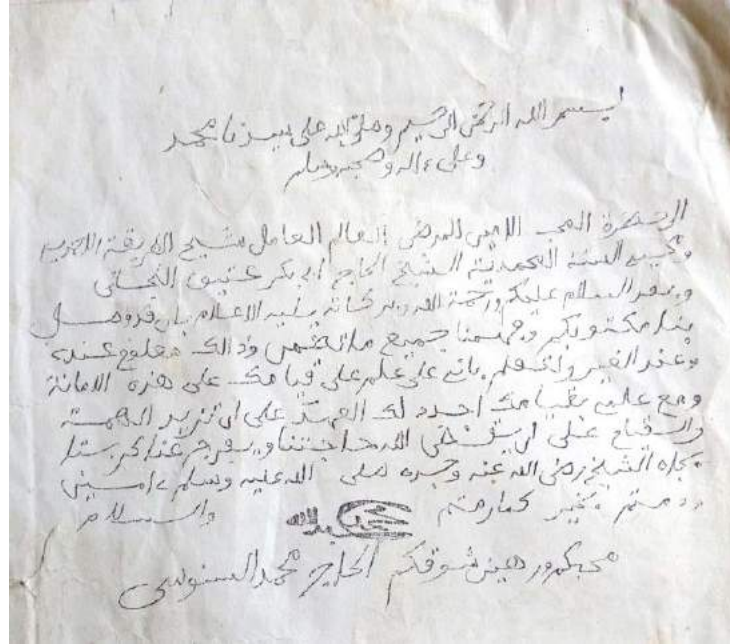 بسم الله الرحمن الرحيم وصلى الله على سيدنا محمد
وعلى ءاله وصحبه وسلم
الحضرة المحب الامين المرضي العالم العامل شيخ الطريقة الاحمدية
ومحيي السنة المحمدية الشيخ الحاج ابي بكر عتيق التجاني
وبعد السلام عليكم ورحمة الله وبركاته يليه الاعلام بان قد وصل
بنا مكتوبكم وفهمنا جميع ما تضمن وذالك مقطوع عنده
وعند الغير ولتعلم باني على علم على قيامك على هذه الامانة
ومع علمي بقيامك اجدد لك العهد على ان تزيد الهمة
والقيام عسى ان يقضي الله حاجتنا ويفرج عنا كربتنا
بجاه الشيخ رضي الله عنه وجده صلى الله عليه وسلم ءامين
ودمتم بخير كما رمتم والسلام
محبكم ورهين شوقكم الحاج محمد السنوسي